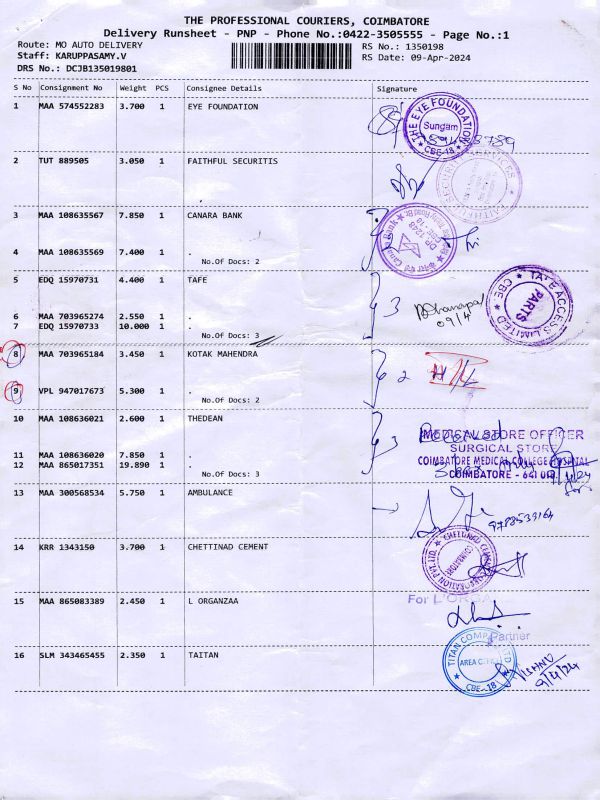 THE PROFESSIONAL COURIERS, COIMBATORE
Delivery Runsheet - PNP - Phone No.:0422-3505555 - Page No.:1
Route: MO AUTO DELIVERY
RS No.: 1350198
Staff: KARUPPASAMY.V
RS Date: 09-Apr-2024
DRS No.: DCJB135019801
S No Consignment No Weight PCS Consignee Details Signature
1 MAA 574552283 3.700 1 EYE FOUNDATION
THE EYE FOUNDATION
Sungam
CBE-18
2 TUT 889505 3.050 1 FAITHFUL SECURITIS
3 MAA 108635567 7.850 1 CANARA BANK
Canara Bank
4 MAA 108635569 7.400 1 .
No.Of Docs: 2
5 EDQ 15970731 4.400 1 TAFE
3
09/4
TAFE ACCESS LIMITED
PARTS
CBE
6 MAA 703965274 2.550 1 .
7 EDQ 15970733 10.000 1 .
No.Of Docs: 3
8 MAA 703965184 3.450 1 KOTAK MAHENDRA
2
9 VPL 947017673 5.300 1 .
No.Of Docs: 2
10 MAA 108636021 2.600 1 THEDEAN
3 Received
MEDICAL STORE OFFICER
SURGICAL STORE
11 MAA 108636020 7.850 1 .
COIMBATORE MEDICAL COLLEGE HOSPITAL
12 MAA 865017351 19.890 1 .
COIMBATORE - 641 018.
No.Of Docs: 3
13 MAA 300568534 5.750 1 AMBULANCE
9788533164
14 KRR 1343150 3.700 1 CHETTINAD CEMENT
CHETTINAD CEMENT CORPORATION PVT LTD
COIMBATORE
15 MAA 865083389 2.450 1 L ORGANZAA
For L'ORGA
Partner
16 SLM 343465455 2.350 1 TAITAN
TITAN COMPANY LTD
AREA OFFICE
CBE-18
VISHNU
9/4/24